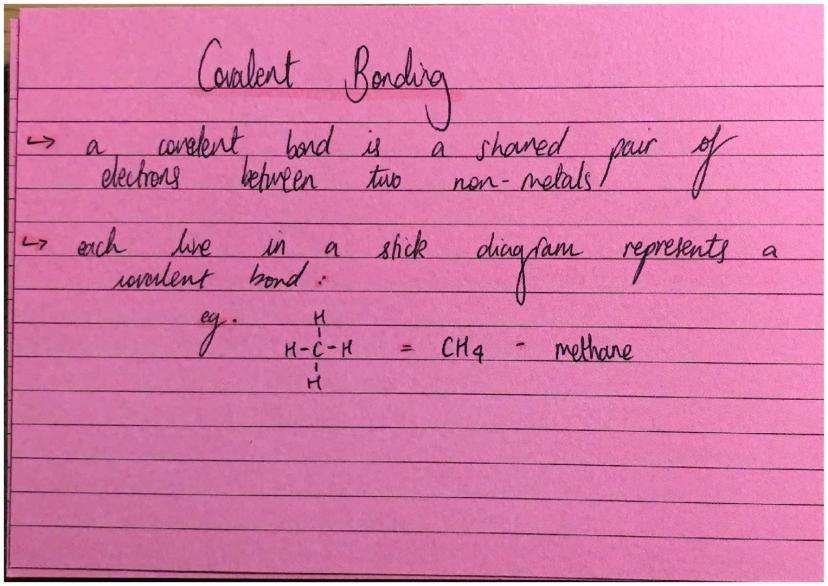 Covalent Bonding
↪ a covalent bond is a shared pair of
electrons between two non-metals
↪ each line in a stick diagram represents a
covalent bond.
eg. H
H-C-H = CH4 - methane
H